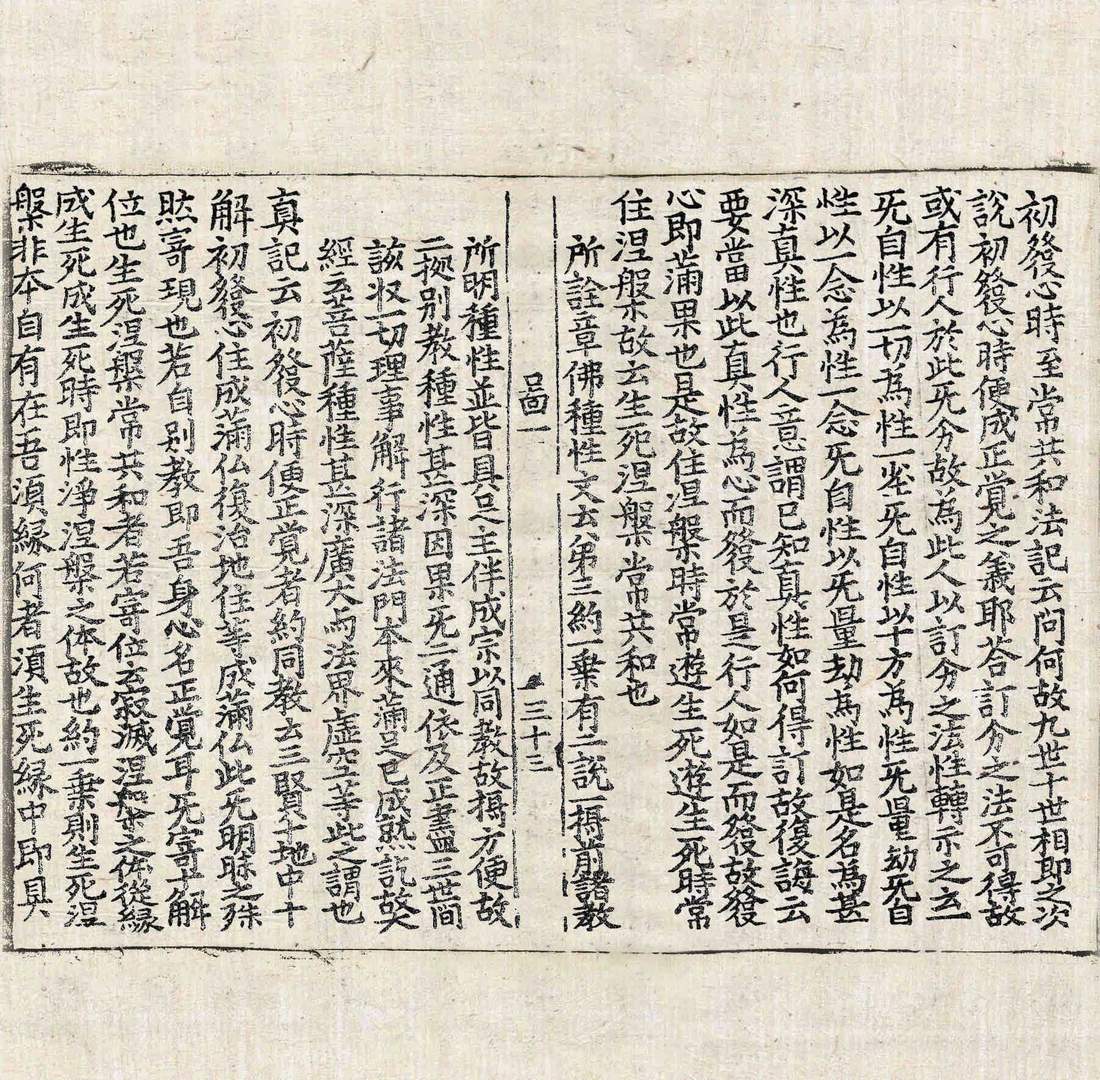 初發心時至常共和法記云問何故九世十世相即之次
說初發心時便成正覺之義耶荅訂分之法不可得故
或有行人於此旡分故爲此人以訂分之法性轉示之云一
旡自性以一切爲性一塵旡自性以十方爲性旡量劫旡自
性以一念爲性一念旡自性以旡量劫爲性如是名爲甚
深真性也行人意謂已知真性如何得訂故復誨云
要當以此真性爲心而發於是行人如是而發故發
心即滿果也是故住涅槃時常遊生死遊生死時常
住涅槃故云生死涅槃常共和也
所詮章佛種性文云第三約一乗有二說一攝前諸教
啚一 三十三
所明種性並皆具足主伴成宗以同教故攝方便故
二挍别教種性甚深因果旡二通依及正盡三世間
該収一切理事解行諸法門本來滿足已成就訖故大
經云菩薩種性甚深廣大與法界虛空等此之謂也
真記云初發心時便正覺者約同教云三賢十地中十
解初發心住成滿仏復治地住等成滿仏此旡明昧之殊
然寄現也若自别教即吾身心名正覺耳旡寄十解
位也生死涅槃常共和者若寄位云寂滅涅槃之体從緣
成生死成生死時即性淨涅槃之体故也約一乗則生死涅
槃非本自有在吾湏緣何者湏生死緣中即具